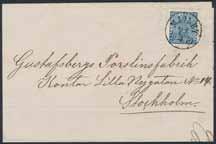 Gustafsbergs Porslinsfabrik
Kontor Lilla Nygatan No 14.
Stockholm.